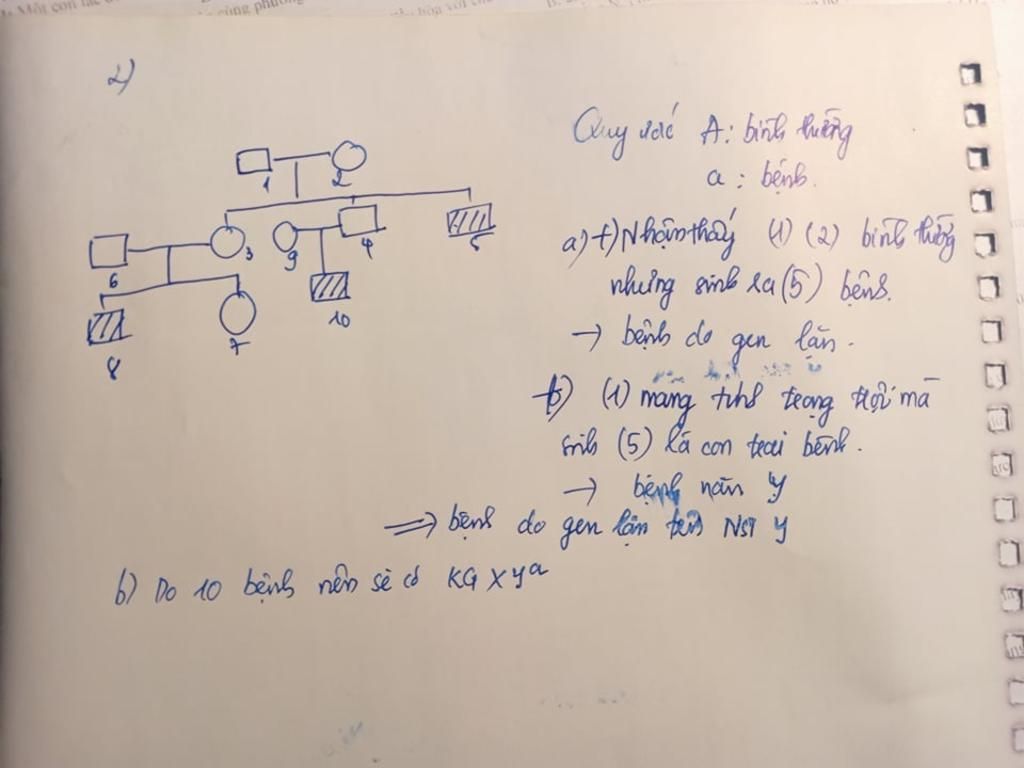 2)
Quy ước A: bình thường
a: bệnh.
1 2
a) +) Nhận thấy (1) (2) bình thường
6 3 9 4 5
nhưng sinh ra (5) bệnh.
10
→ bệnh do gen lặn.
8 7
+) (1) mang tính trạng trội mà
sinh (5) là con trai bệnh.
→ bệnh nằn Y
⇒ bệnh do gen lặn trên NST Y
b) Do 10 bệnh nên sẽ có KG XYᵃ